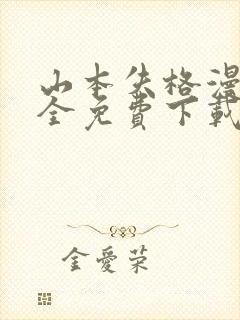 山本失格漫
全免費下載
金愛荣